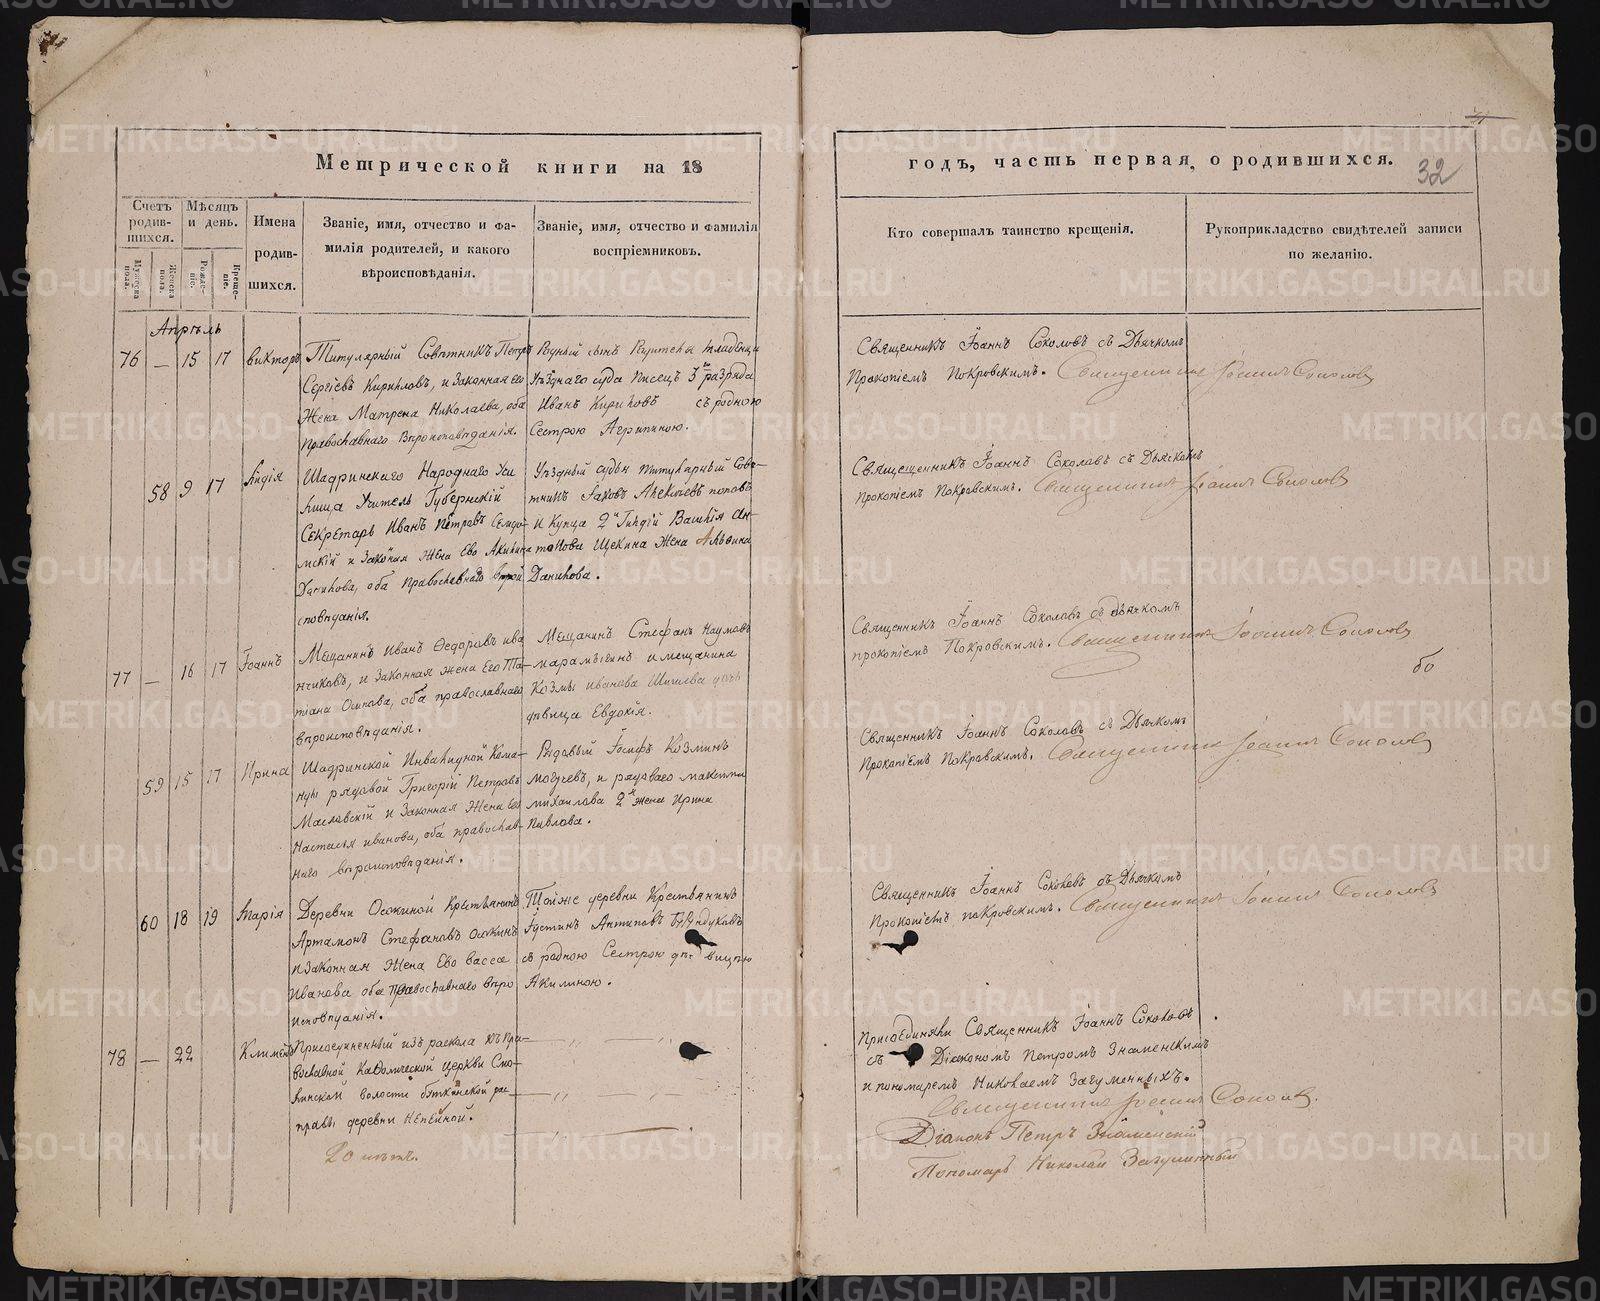 Метрической книги на 18
Счетъ родив- шихся.
Мужеска пола.
Женска пола.
Мѣсяцъ и день.
Рожде- ніе.
Креще- ніе.
Имена родив- шихся.
Званіе, имя, отчество и фа-
милія родителей, и какого
вѣроисповѣданія.
Званіе, имя, отчество и фамилія
воспріемниковъ.
Апрѣль
76 — 15 17 Викторъ
Титулярный Совѣтникъ Петръ
Сергіевъ Кириловъ, и Законная его
Жена Матрена Николаева, оба
Православнаго Вѣроисповѣданія.
Родный сынъ Родителя младенца
Уѣзднаго суда Писецъ 3го разряда
Иванъ Кириловъ съ родною
Сестрою Агрипиною.
58 9 17 Лидія
Шадринскаго Народнаго Учи
лища Учитель Губернскій
Секретарь Иванъ Петровъ
мскій и Законая Жена Ево Акилина
Данилова, оба Православнаго вѣрои
сповѣданія.
Уѣздный судья титулярный Совѣ-
тникъ Іаковъ Алексіевъ поповъ
И Купца 2й Гилдіи Василія Ан-
типова Щекина Жена
Данилова.
77 — 16 17 Іоаннъ
Мещанинъ Иванъ Федоровъ Ива
нчиковъ, и Законная жена Его Та-
тіана Осипова, оба православнаго
вѣроисповѣданія.
Мещанинъ Стефанъ Наумовъ
и мещанина
Козмы Иванова Шишева дочь
дѣвица Евдокія.
59 15 17 Ирина
Шадринской Инвалидной Кома-
нды рядовой Григорій Петровъ
Масловскій и Законная Жена Его
Настасья Иванова, оба православ-
наго вѣроисповѣданія.
Рядовый Іосифъ Козминъ
Могучевъ, и рядоваго максима
михаилова 2я жена Ирина
Павлова.
60 18 19 Марія
Деревни Осокиной Крестьянинъ
Артамонъ Стефановъ Осокинъ
и Законная Жена Ево Васса
Иванова оба Православнаго вѣро
исповѣданія.
Тойже деревни Крестьянинъ
Іустинъ Антиповъ Бурндуковъ
съ родною Сестрою дѣвицею
Акилиною.
78 — 22 Климентъ
Присоединенный изъ раскола къ Пра-
вославной Каѳолической Церкви
волости рас-
правы деревни
20 лѣтъ.
годъ, часть первая, о родившихся.
32
Кто совершалъ таинство крещенія.
Рукоприкладство свидѣтелей записи
по желанію.
Священникъ Іоаннъ Соколовъ съ Дьячкомъ
Прокопіемъ Покровскимъ. Священникъ Іоаннъ Соколовъ
Священникъ Іоаннъ Соколовъ съ Дьячкомъ
Прокопіемъ Покровскимъ. Священникъ Іоаннъ Соколовъ
Священникъ Іоаннъ Соколовъ съ дьячкомъ
прокопіемъ Покровскимъ. Священникъ Іоаннъ Соколовъ
бо
Священникъ Іоаннъ Соколовъ съ Дьячкомъ
Прокопіемъ Покровскимъ. Священникъ Іоаннъ Соколовъ
Священникъ Іоаннъ Соколовъ съ Дьячкомъ
Прокопіемъ покровскимъ. Священникъ Іоаннъ Соколовъ
Присоединяли Священникъ Іоаннъ Соколовъ
съ Діакономъ Петромъ Знаменскимъ
и пономаремъ Николаемъ Загуменныхъ.
Священникъ Іоаннъ Соколовъ.
Діаконъ Петръ Знаменскій
Пономарь Николай Загуменный